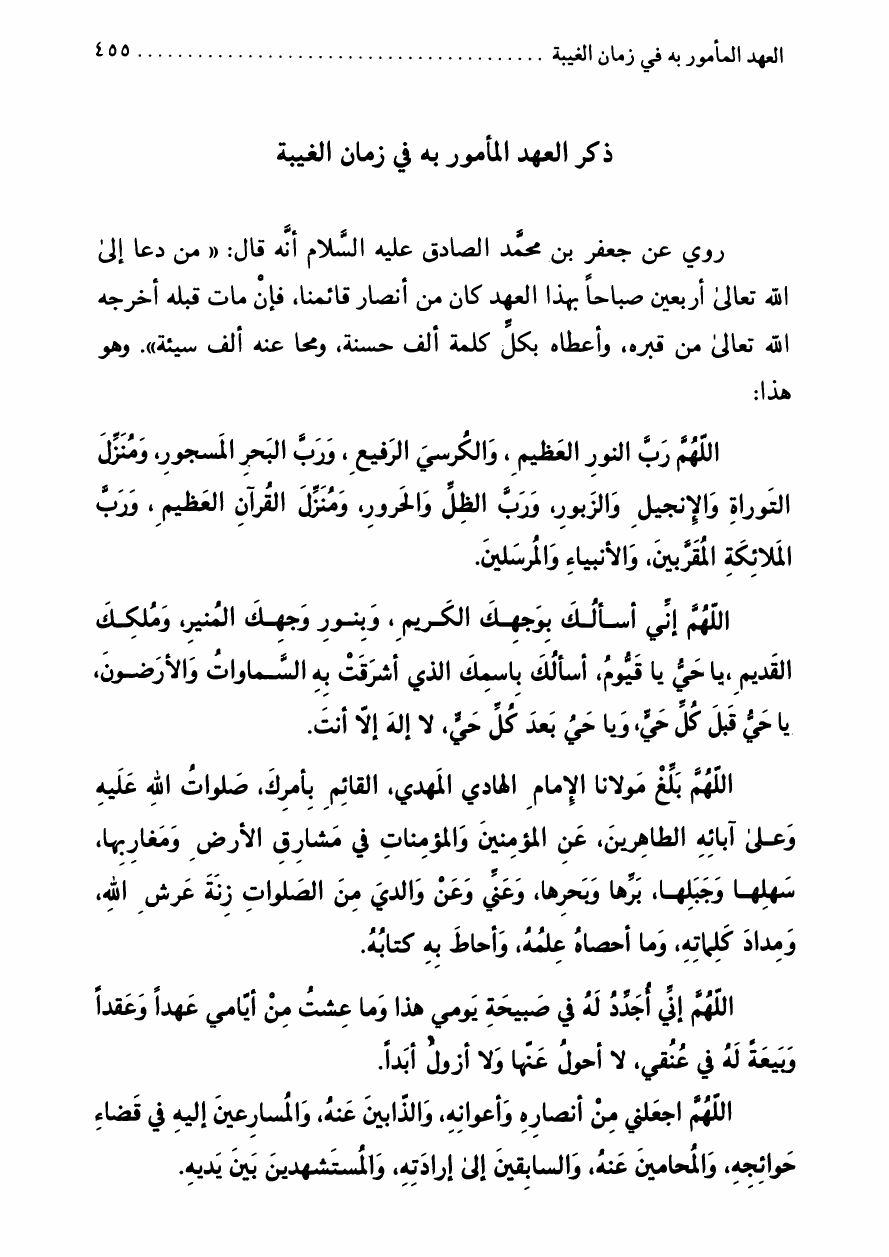 العهد المأمور به في زمان الغيبة ........................................ ٤٥٥
ذكر العهد المأمور به في زمان الغيبة
روي عن جعفر بن محمَّد الصادق عليه السَّلام أنَّه قال: « من دعا إلىٰ
الله تعالىٰ أربعين صباحاً بهذا العهد كان من أنصار قائمنا، فإنْ مات قبله أخرجه
الله تعالىٰ من قبره، وأعطاه بكلِّ كلمة ألف حسنة، ومحا عنه ألف سيئة». وهو
هذا:
اللّهُمَّ رَبَّ النورِ العَظيمِ، وَالكُرسيَ الرَفيعِ، وَرَبَّ البَحرِ المَسجورِ، وَمُنَزِّلَ
التَوراةِ وَالإنجيلِ وَالزَبورِ، وَرَبَّ الظِلِّ وَالحَرورِ، وَمُنَزِّلَ القُرآنِ العَظيمِ، وَرَبَّ
المَلائِكَةِ المُقَرَّبينَ، وَالأنبياءِ وَالمُرسَلينَ.
اللّهُمَّ إنِّي أسـألُـكَ بوَجهِـكَ الكَـريمِ، وَبنـورِ وَجهِـكَ المُنيرِ، وَمُلكِـكَ
القَديمِ، يا حَيُّ يا قَيُّومُ، أسألُكَ باسمِكَ الذي أشرَقَتْ بِهِ السَّماواتُ وَالأرَضـونَ،
يا حَيُّ قَبلَ كُلِّ حَيٍّ، وَيا حَيُ بَعدَ كُلِّ حَيٍّ، لا إلهَ إلاّ أنتَ.
اللّهُمَّ بَلِّغْ مَولانا الإمامِ الهادي المَهدي، القائِمِ بأمرِكَ، صَلواتُ اللهِ عَلَيهِ
وَعـلىٰ آبائِهِ الطاهِرينَ، عَنِ المؤمِنينَ وَالمؤمِناتِ في مَشارِقِ الأرضِ وَمَغارِبِها،
سَهلِهـا وَجَبَلِهـا، بَرِّها وَبَحرِها، وَعَنِّي وَعَنْ وَالديَ مِنَ الصَلواتِ زِنَةَ عَرشِ اللهِ،
وَمِدادَ كَلِماتِهِ، وَما أحصاهُ عِلمُهُ، وَأحاطَ بِهِ كتابُهُ.
اللّهُمَّ إنِّي أُجَدِّدُ لَهُ في صَبيحَةِ يَومي هذا وَما عِشتُ مِنْ أيّامي عَهداً وَعَقداً
وَبَيعَةً لَهُ في عُنُقي، لا أحولُ عَنها وَلا أزولُ أبَداً.
اللّهُمَّ اجعَلني مِنْ أنصارِهِ وَأعوانِهِ، وَالذّابينَ عَنهُ، وَالمُسارِعينَ إليهِ في قَضاءِ
حَوائِجِهِ، وَالمُحامينَ عَنهُ، وَالسابِقينَ إلىٰ إرادَتِهِ، وَالمُستَشهدينَ بَينَ يَديهِ.